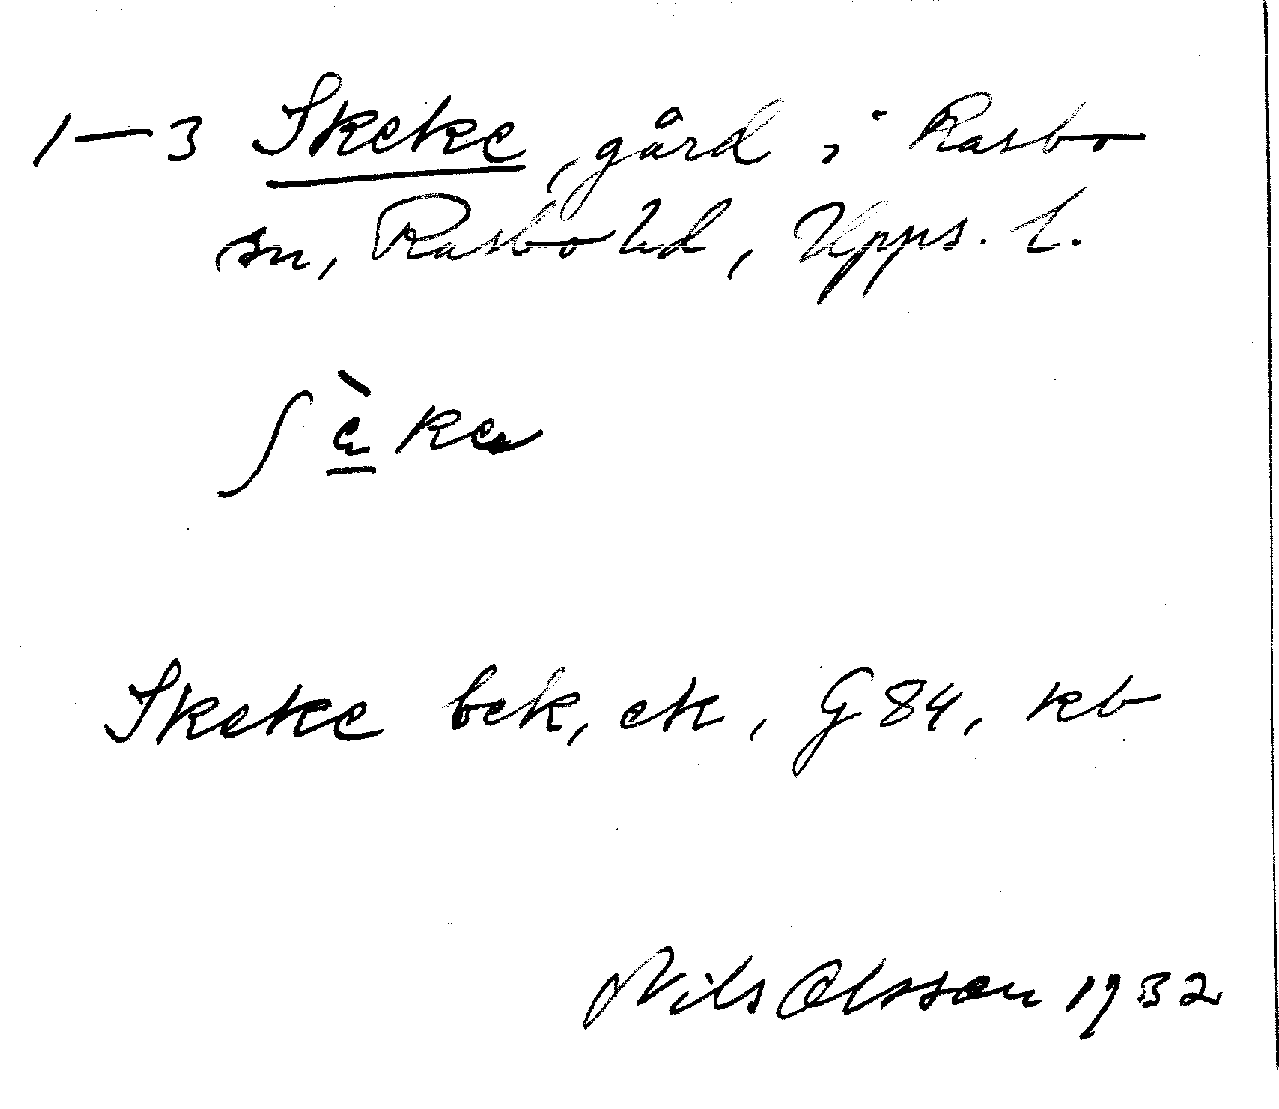 1–3 Skeke, gård i Rasbo
sn, Rasbo hd, Upps. l.
ʃè̱ka
Skeke bek, ek, G 84, kb
Nils Olsson 1932